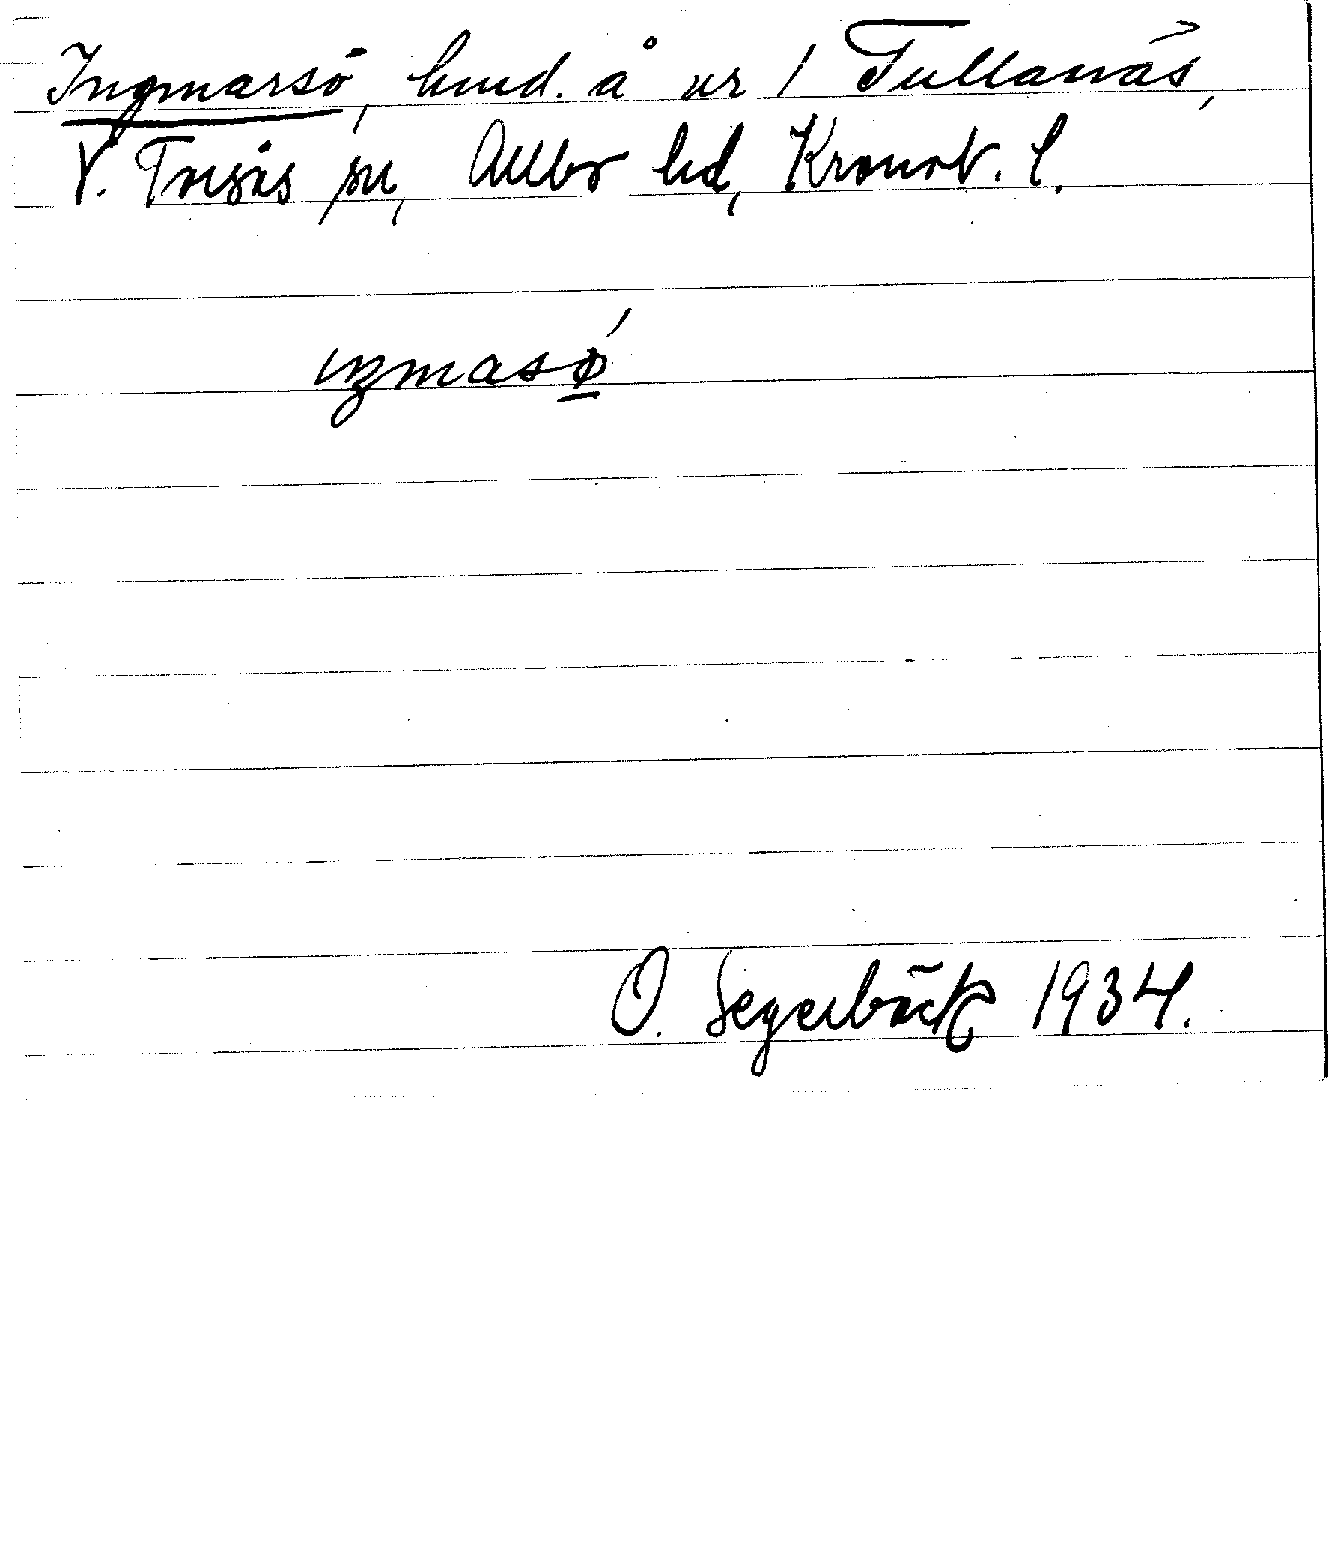 Ingmarsö, hmd. å nr 1 Tullanäs,
V. Torsås sn, Allbo hd, Kronob. l.
ıŋmasǿ
O. Segerbäck 1934.